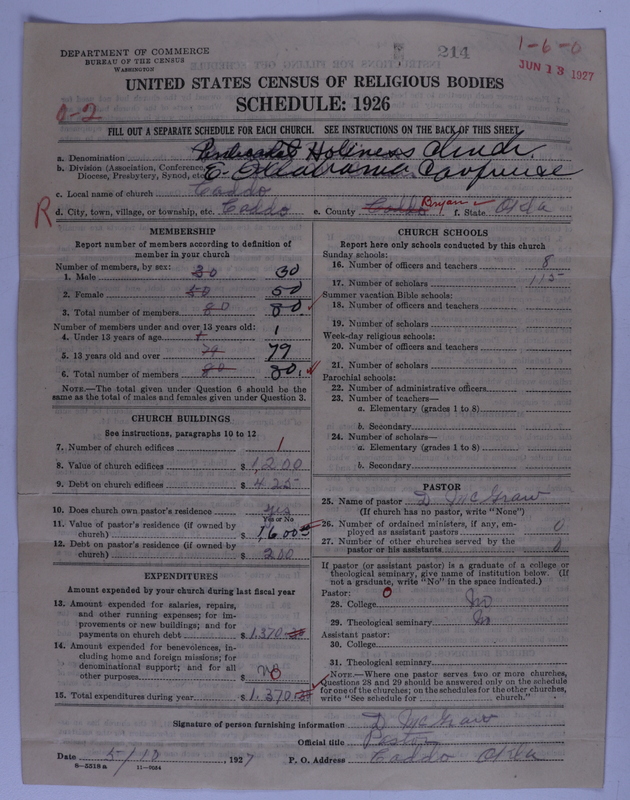 DEPARTMENT OF COMMERCE
BUREAU OF THE CENSUS
WASHINGTON
214
1-6-0
JUN 13 1927
UNITED STATES CENSUS OF RELIGIOUS BODIES
SCHEDULE: 1926
0-2
FILL OUT A SEPARATE SCHEDULE FOR EACH CHURCH. SEE INSTRUCTIONS ON THE BACK OF THIS SHEET
a. Denomination Pentecostal Holiness Church.
b. Division (Association, Conference,
Diocese, Presbytery, Synod, etc. E. Oklahoma Conference
c. Local name of church Caddo
R
d. City, town, village, or township, etc. Caddo e. County Caddo Bryan f. State Okla
MEMBERSHIP
Report number of members according to definition of
member in your church
Number of members, by sex:
1. Male 30 30
2. Female 50 50
3. Total number of members 80 80
Number of members under and over 13 years old:
4. Under 13 years of age 1 1
5. 13 years old and over 79 79
6. Total number of members 80 80.
NOTE.—The total given under Question 6 should be the
same as the total of males and females given under Question 3.
CHURCH BUILDINGS
See instructions, paragraphs 10 to 12
7. Number of church edifices 1
8. Value of church edifices $1,200
9. Debt on church edifices $425
10. Does church own pastor's residence yes
Yes or No
11. Value of pastor's residence (if owned by
church) $1600
12. Debt on pastor's residence (if owned by
church) $200
EXPENDITURES
Amount expended by your church during last fiscal year
13. Amount expended for salaries, repairs,
and other running expenses; for im-
provements or new buildings; and for
payments on church debt $1,370
14. Amount expended for benevolences, in-
cluding home and foreign missions; for
denominational support; and for all
other purposes $ no
15. Total expenditures during year $1,370
CHURCH SCHOOLS
Report here only schools conducted by this church
Sunday schools:
16. Number of officers and teachers 8
17. Number of scholars 115
Summer vacation Bible schools:
18. Number of officers and teachers
19. Number of scholars
Week-day religious schools:
20. Number of officers and teachers
21. Number of scholars
Parochial schools:
22. Number of administrative officers
23. Number of teachers—
a. Elementary (grades 1 to 8)
b. Secondary
24. Number of scholars—
a. Elementary (grades 1 to 8)
b. Secondary
PASTOR
25. Name of pastor D McGraw
(If church has no pastor, write "None")
26. Number of ordained ministers, if any, em-
ployed as assistant pastors 0
27. Number of other churches served by the
pastor or his assistants 0
If pastor (or assistant pastor) is a graduate of a college or
theological seminary, give name of institution below. (If
not a graduate, write "No" in the space indicated.)
Pastor: 0
28. College No
29. Theological seminary No
Assistant pastor:
30. College
31. Theological seminary
NOTE.—Where one pastor serves two or more churches,
Questions 28 and 29 should be answered only on the schedule
for one of the churches; on the schedules for the other churches,
write "See schedule for church."
Signature of person furnishing information D McGraw
Official title Pastor
Date 5/10, 1927 P. O. Address Caddo Okla
8-5518 a 11-9034